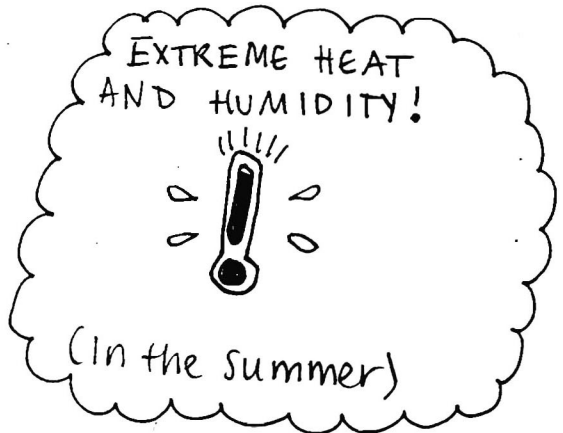 EXTREME HEAT
AND HUMIDITY!
(In the summer)